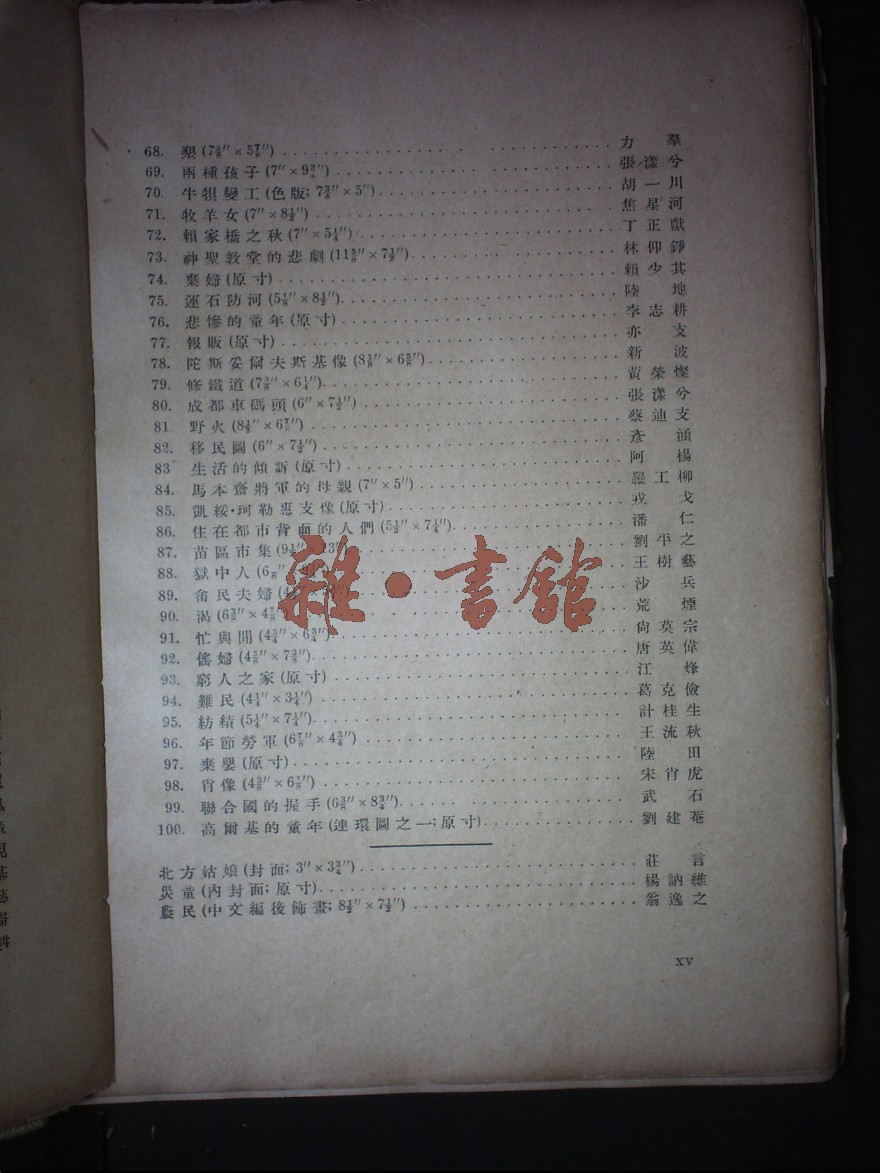 68. 墾 (7⅜″ × 5⅞″) 力羣
69. 兩種孩子 (7″ × 9 ″) 張漾兮
70. 牛犋變工 (色版; 7¾″ × 5″) 胡一川
71. 牧羊女 (7″ × 8½″) 焦星河
72. 賴家橋之秋 (7″ × 5¼″) 丁正獻
73. 神聖教堂的悲劇 (11⅝″ × 7½″) 林仰錚
74. 棄婦 (原寸) 賴少其
75. 運石防河 (5⅛″ × 8½″) 陸地
76. 悲慘的童年 (原寸) 李志耕
77. 報販 (原寸) 亦支
78. 陀斯妥爾夫斯基像 (8⅝″ × 6⅝″) 新波
79. 修鐵道 (7⅜″ × 6¼″) 黃榮燦
80. 成都車碼頭 (6″ × 7½″) 張漾兮
81 野火 (8½″ × 6⅞″) 蔡迪支
82. 移民圖 (6″ × 7½″) 彥涵
83 生活的傾訴 (原寸) 阿楊
84. 馬本齋將軍的母親 (7″ × 5″) 羅工柳
85. 凱綏·珂勒惠支像 (原寸) 戎戈
86. 住在都市背面的人們 (5½″ × 7¼″) 潘仁
87. 苗區市集 劉平之
88. 獄中人 王樹藝
89. 畬民夫婦 沙兵
90. 渴 (6⅜″ × 4⅞″) 荒煙
91. 忙與閒 (4¾″ × 6¾″) 尙莫宗
92. 傜婦 (4⅝″ × 7⅜″) 唐英偉
93. 窮人之家 (原寸) 江烽
94. 難民 (4¼″ × 3¼″) 葛克儉
95. 紡績 (5¼″ × 7¼″) 計桂生
96. 年節勞軍 (6⅞″ × 4¾″) 王流秋
97. 棄嬰 (原寸) 陸田
98. 肖像 (4⅜″ × 6⅛″) 宋肖虎
99. 聯合國的握手 (6⅜″ × 8¾″) 武石
100. 高爾基的童年 (連環圖之一; 原寸) 劉建菴
北方姑娘 (封面; 3″ × 3¾″) 莊言
災童 (內封面; 原寸) 楊訥維
農民 (中文編後飾畫; 8½″ × 7½″) 翁逸之
xv
雜·書館